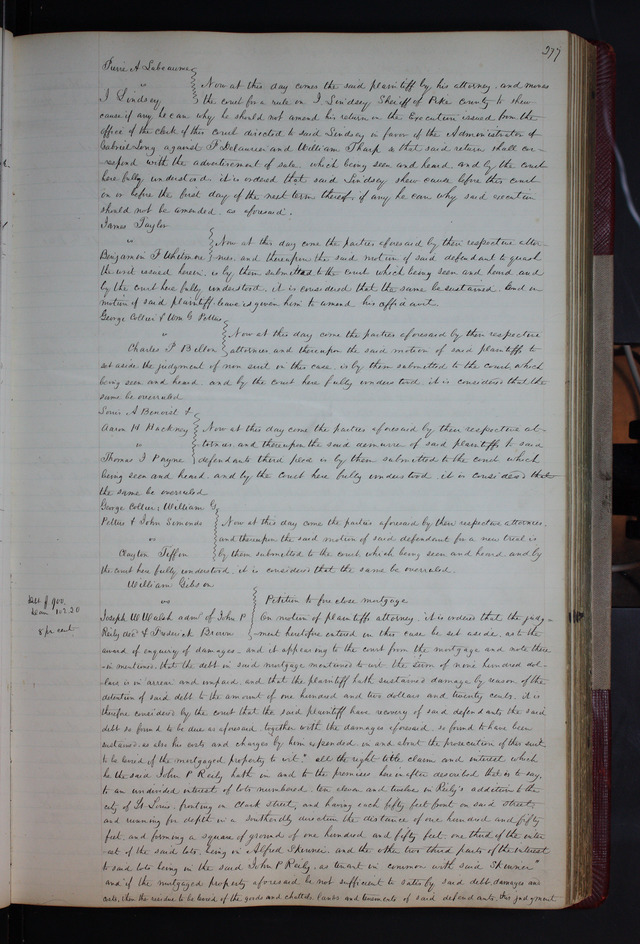 277
Pierre A Labeaume
vs Now at this day comes the said plaintiff by his attorney, and moves
I Lindsey the court for a rule on I. Lindsey Sheriff of Pike county to shew
cause if any he can why he should not amend his return on the Execution issued from the
office of the clerk of this court directed to said Lindsey in favor of the Administrator of
Gabriel Long against and William Tharp so that said return shall cor-
respond with the advertisement of sale, which being seen and heard, and by the court
here fully understood, it is ordered that said Lindsey shew cause before this court
on or before the first day of the next term thereof, if any he can why said execution
should not be amended, as aforesaid.
James Taylor
vs Now at this day come the parties aforesaid by their respective attor-
Benjamin F Whitmore nies, and thereupon the said motion of said defendant to quash
the writ issued herein, is by them submitted to the court which being seen and heard and
by the court here fully understood, it is considered that the same be sustained. And on
motion of said plaintiff leave is given him to amend his affidavit.
George Collier & Wm G Pettus
vs Now at this day come the parties aforesaid by their respective
Charles P Belton attornies and thereupon the said motion of said plaintiffs to
set aside the judgment of non suit in this case, is by them submitted to the court, which
being seen and heard, and by the court here fully understood, it is considered that the
same be overruled.
Louis A Benoist &
Aaron H Hackney Now at this day come the parties aforesaid by their respective at-
vs tornies, and thereupon the said demurrer of said plaintiffs to said
Thomas J Payne defendants third plea is by them submitted to the court which
being seen and heard, and by the court here fully understood, it is considered that
the same be overruled.
George Collier, William G.
Pettus & John Simonds Now at this day come the parties aforesaid by their respective attornies,
vs and thereupon the said motion of said defendant for a new trial is
Clayton Tiffin by them submitted to the court which being seen and heard, and by
the court here fully understood, it is considered that the same be overruled.
William Gibson
vs Petition to foreclose mortgage
Debt $900.
Dam 102.20
8 pr cent.
Joseph W Walsh admr of John P On motion of plaintiffs attorney, it is ordered that the judg-
Reily decd & Frederick Brown ment heretofore entered in this case be set aside, as to the
award of enquiry of damages, and it appearing to the court from the mortgage and note there-
in mentioned, that the debt in said mortgage mentioned to wit, the sum of nine hundred dol-
lars is in arrear and unpaid, and that the plaintiff hath sustained damage by reason of the
detention of said debt to the amount of one hundred and two dollars and twenty cents, it is
therefore considered by the court that the said plaintiff have recovery of said defendants the said
debt so found to be due as aforesaid, together with the damages aforesaid, so found to have been
sustained, as also his costs and charges by him expended in and about the prosecution of this suit,
to be levied of the mortgaged property to wit: "all the right title, claim and interest which
he the said John P Reily hath in and to the premises hereinafter described that is to say,
to an undivided interest of lots numbered ten eleven and twelve in Reily's addition to the
city of St Louis, fronting on Clark street, and having each fifty feet front on said street,
and running for depth in a southerdly direction the distance of one hundred and fifty
feet, and forming a square of ground of one hundred and fifty feet, one third of the inter
est of the said lots, being in Alfred Skinner, and the other two third parts of the interest
to said lots being in the said John P. Reily, as tenant in common with said Skinner"
and if the mortgaged property aforesaid be not sufficient to satisfy said debt, damages and
costs, then the residue to be levied of the goods and chattels, lands and tenements of said defendants, this judgment